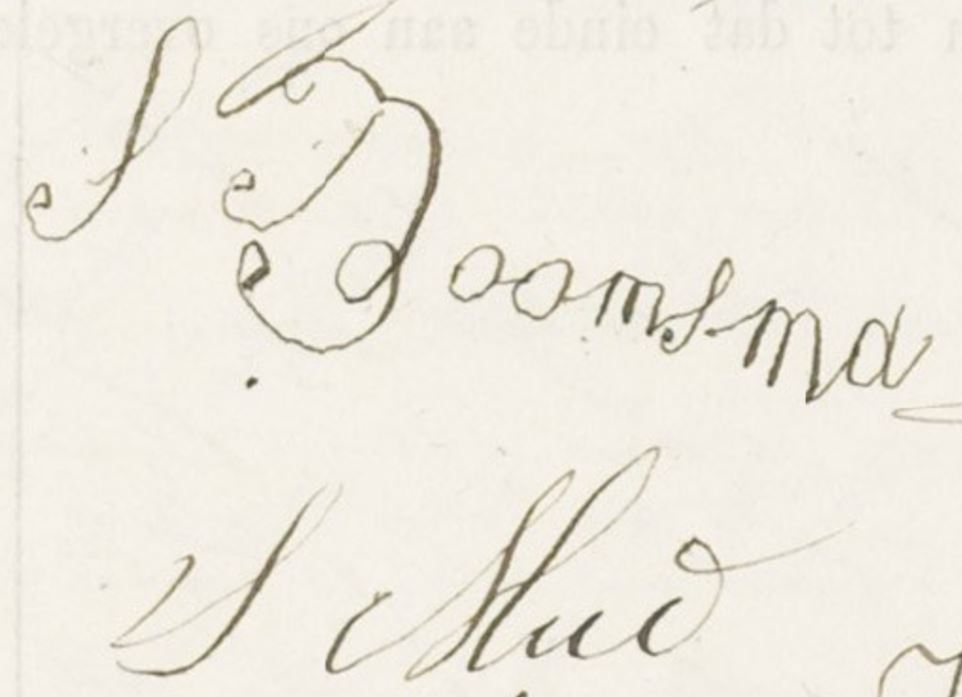 n tot dat einde aan ons overgele
S Boomsma
S Mud